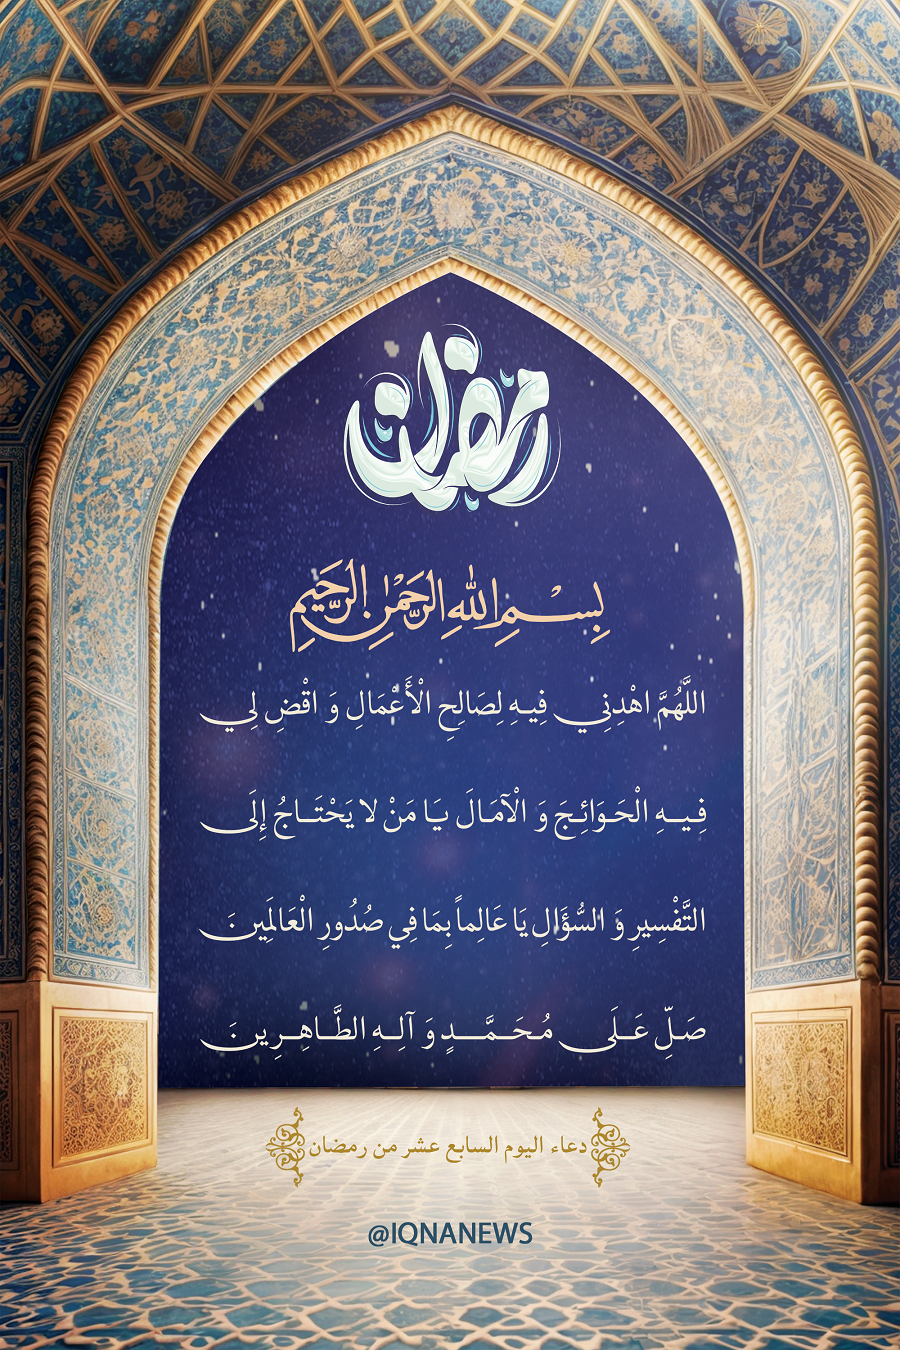 رمضان
بِسْمِ اللهِ الرَّحْمٰنِ الرَّحِيمِ
اللَّهُمَّ اهْدِنِي فِيهِ لِصَالِحِ الْأَعْمَالِ وَ اقْضِ لِي
فِيهِ الْحَوَائِجَ وَ الْآمَالَ يَا مَنْ لا يَحْتَاجُ إِلَى
التَّفْسِيرِ وَ السُّؤَالِ يَا عَالِماً بِمَا فِي صُدُورِ الْعَالَمِينَ
صَلِّ عَلَى مُحَمَّدٍ وَ آلِهِ الطَّاهِرِينَ
دعاء اليوم السابع عشر من رمضان
@IQNANEWS